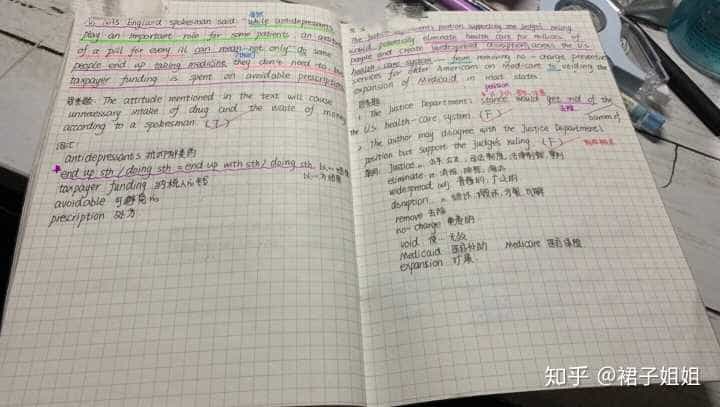 NHS England spokesman said: while antidepressants
play an important role for some patients, an
of a pill for every ill can mean not only do some
people end up taking medicine they don't need to but
taxpayer funding is spent on avoidable prescriptions
The attitude mentioned in the text will cause
unnecessary intake of drug and the waste of money
according to a spokesman. (T)
antidepressants 抗抑郁类药
end up sth / doing sth = end up with sth / doing sth. 以…结束
以…为结局
taxpayer funding 纳税人的钱
avoidable 可避免的
prescription 处方
The Justice Department's position supporting the judge's ruling
would potentially eliminate health care for millions of
people and create widespread disruption across the U.S.
health-care system — from removing no-charge preventive
services for older Americans on Medicare to voiding the
expansion of Medicaid in most states.
position
1. The Justice Department's stance would get rid of the
去除
the U.S. health-care system. (F)
2. The author may disagree with the Justice Department's
position but support the judge's ruling. (F)
Justice n.
eliminate v. 消除,排除
widespread adj. 普遍的,广泛的
disruption n.
remove 去除
no-charge 免费的
void 使…无效
Medicaid 医疗补助 Medicare 医疗保险
expansion 扩展
知乎 @裙子姐姐